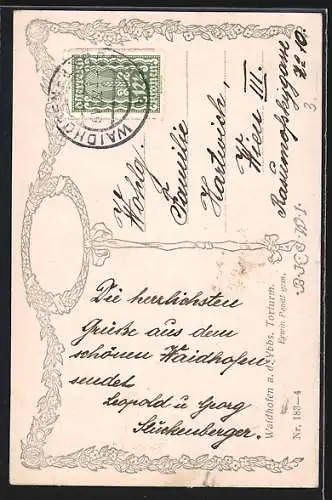 WAIDHOFEN
Wohlg.
Familie
Hartwich,
Wien III.
Rasumofskygasse
№ 10.
3.
Die herrlichsten
Grüße aus dem
schönen Waidhofen
sendet
Leopold u Georg
Stuckenberger.
Waidhofen a. d. Ybbs. Torturm.
Erwin Pendl gem.
Nr. 183—4
B.K.W.I.